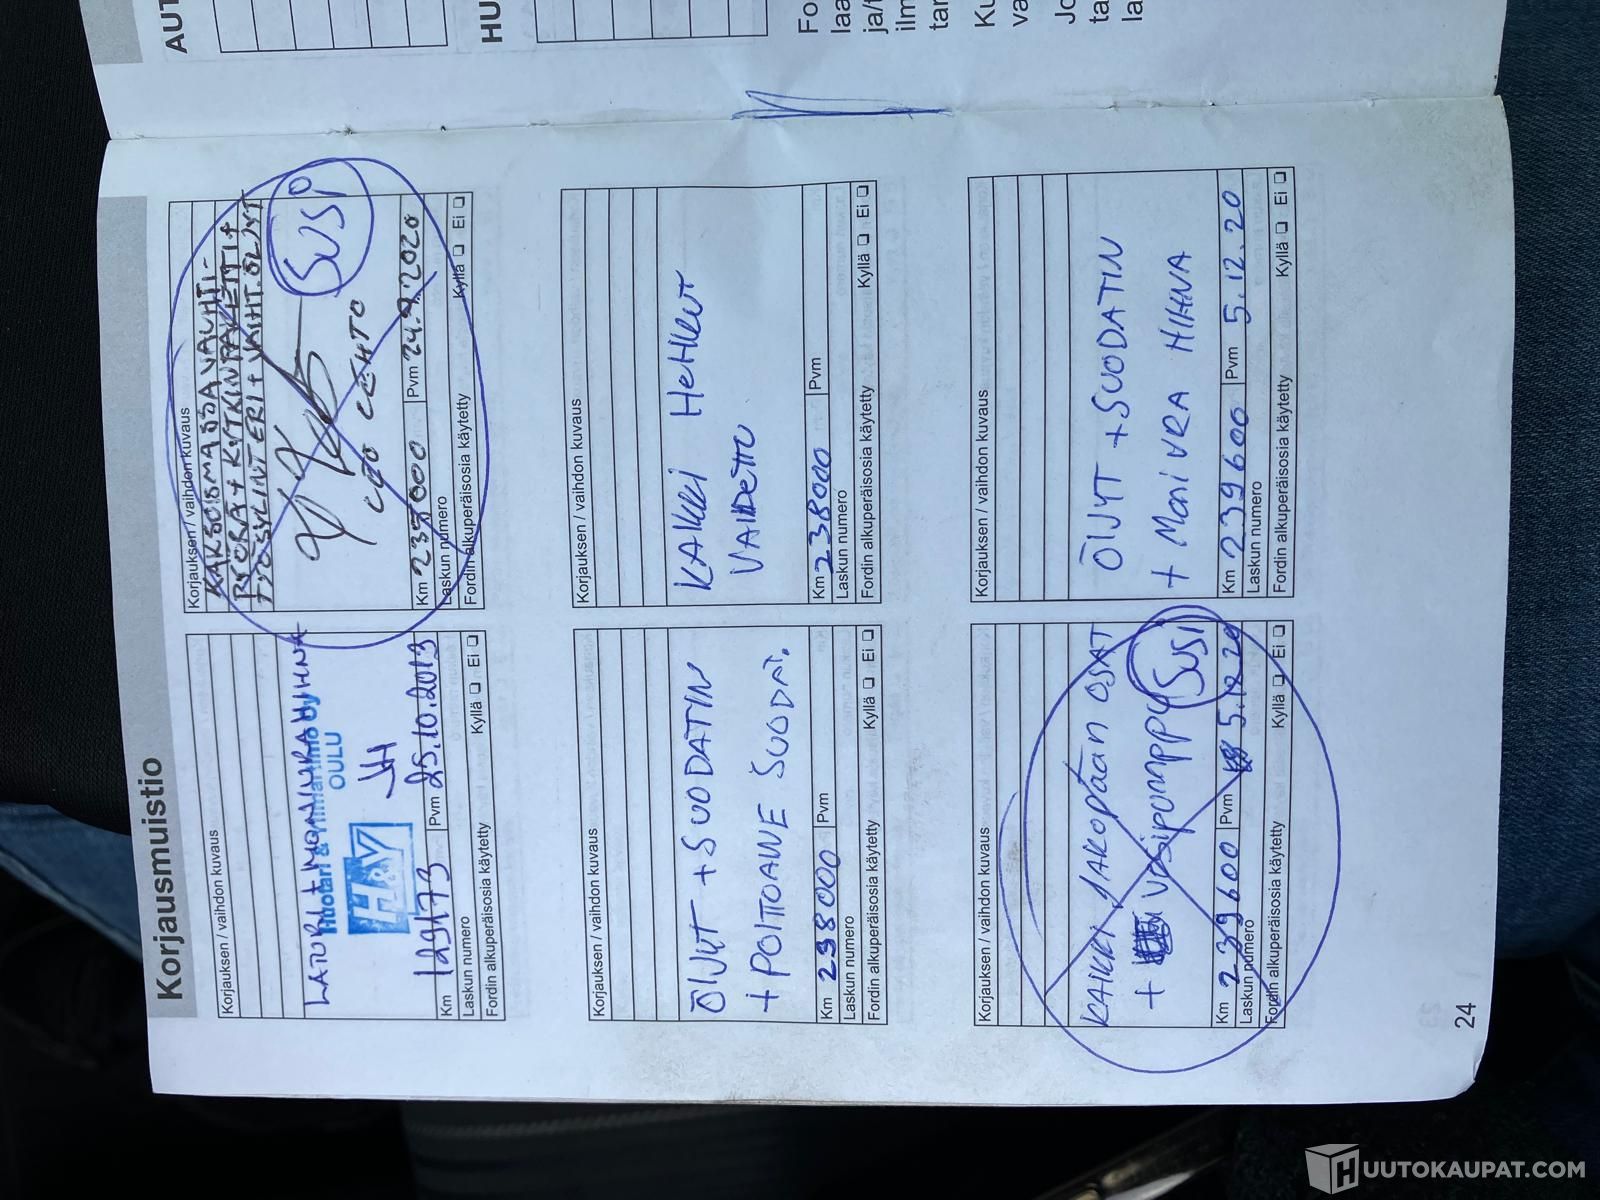 Korjausmuistio
Korjauksen / vaihdon kuvaus
LATURI + MONIURAHIHNA
Huolari & Ylimartimo Oy
OULU
H&Y
JH
Km 129173 Pvm 25.10.2013
Laskun numero
Kyllä ❏ Ei ❏
Fordin alkuperäisosia käytetty
Korjauksen / vaihdon kuvaus
KAKSOISMASSAVAUHTI-
PYÖRÄ + KYTKINPAKETTI +
TYÖSYLINTERI + VAIHT.ÖLJYT
SUSI
CEO LEHTO
Km 235000 Pvm 24.9.2020
Laskun numero
Fordin alkuperäisosia käytetty Kyllä ❏ Ei ❏
Korjauksen / vaihdon kuvaus
ÖLJYT + SUODATIN
+ POLTTOAINE SUODAT.
Km 238000 Pvm
Laskun numero
Fordin alkuperäisosia käytetty Kyllä ❏ Ei ❏
Korjauksen / vaihdon kuvaus
KAIKKI HEHKUT
VAIHDETTU
Km 238000 Pvm
Laskun numero
Fordin alkuperäisosia käytetty Kyllä ❏ Ei ❏
Korjauksen / vaihdon kuvaus
KAIKKI JAKOPÄÄN OSAT
+ VESIPUMPPU
SUSI
Km 239600 Pvm 5.12.20
Laskun numero
Fordin alkuperäisosia käytetty Kyllä ❏ Ei ❏
Korjauksen / vaihdon kuvaus
ÖLJYT + SUODATIN
+ MONIURA HIHNA
Km 239600 Pvm 5.12.20
Laskun numero
Fordin alkuperäisosia käytetty Kyllä ❏ Ei ❏
24
AUT
HU
Fo
laa
ja/t
ilm
tar
Ku
va
Jo
ta
la
HUUTOKAUPAT.COM